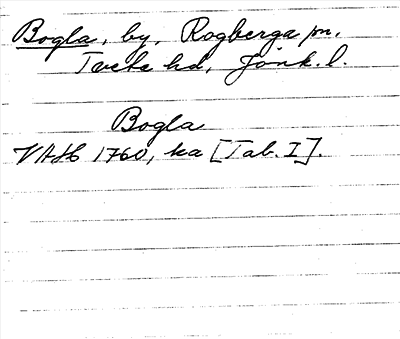 Bogla, by, Rogberga sn,
Tveta hd, Jönk. l.
Bogla
VAH 1760, ka [Tab. I].